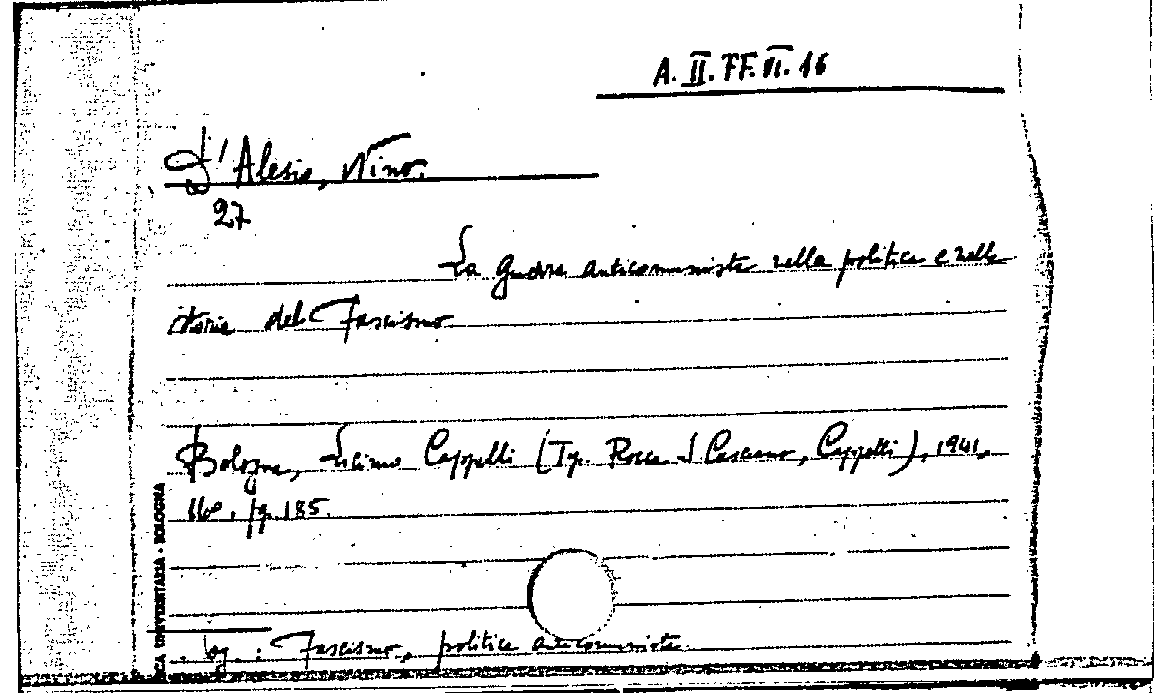 A. II. FF. VI. 16
D'Alesio, Nino.
27
La guerra anticomunista nella politica e nella
storia del Fascismo
Bologna, Licinio Cappelli (Tip. Rocca S. Casciano, Cappelli), 1941,
16°, pg. 185.
: Fascismo, politica anticomunista
UNIVERSITARIA - BOLOGNA